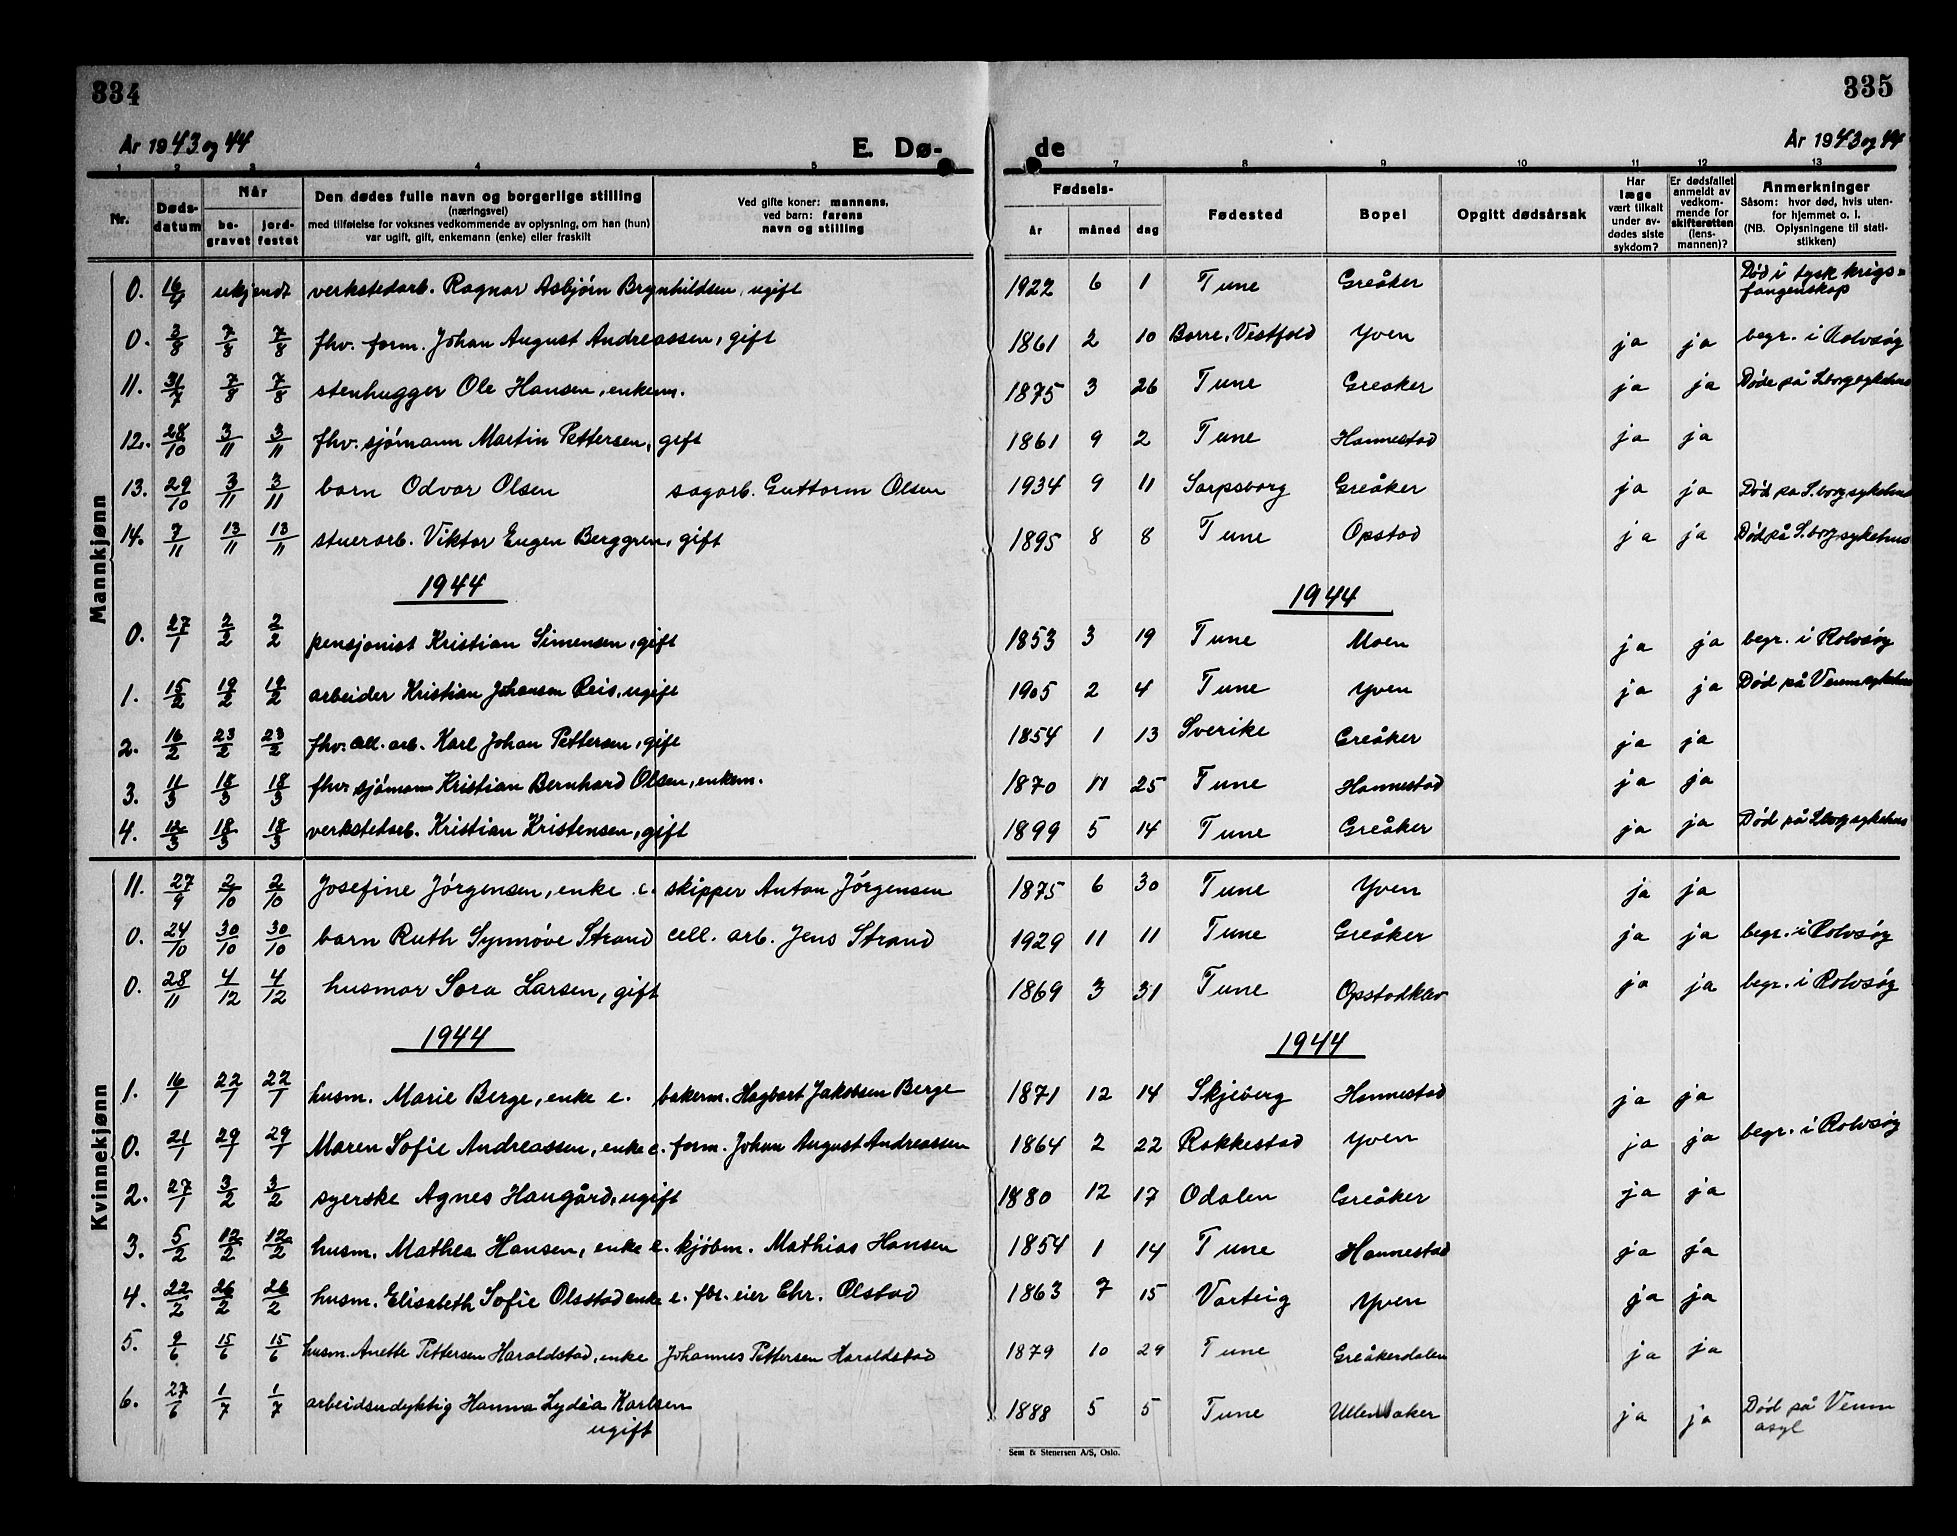 334
335
År 1943 og 44
E. Dø-
de
År 1943 og 44
1 2 3 4 5 7 8 9 10 11 12 13
Nr. Døds-datum Når be-gravet jord-festet Den dødes fulle navn og borgerlige stilling (næringsvei) med tilføielse for voksnes vedkommende av oplysning, om han (hun) var ugift, gift, enkemann (enke) eller fraskilt Ved gifte koner: mannens, ved barn: farens navn og stilling Fødsels- år måned dag Fødested Bopel Opgitt dødsårsak Har læge vært tilkalt under av-dødes siste sykdom? Er dødsfallet anmeldt av vedkom-mende for skifteretten (lens-mannen)? Anmerkninger Såsom: hvor død, hvis uten-for hjemmet o. l. (NB. Oplysningene til stati-stikken)
Mannkjønn
0. 16/4 ukjendt verkstedarb. Ragnar Asbjørn Brynhildsen, ugift 1922 6 1 Tune Greåker Død i tysk krigs-fangenskap
0. 3/8 7/8 7/8 fhv. form. Johan August Andreassen, gift 1861 2 10 Borre, Vestfold Yven ja ja begr. i Rolvsøy
11. 31/7 7/8 7/8 stenhugger Ole Hansen, enkem. 1875 3 26 Tune Greaker ja ja Døde på S.borg sykehus
12. 28/10 3/11 3/11 fhv. sjømann Martin Pettersen, gift 1861 9 2 Tune Hannestad ja ja
13. 29/10 3/11 3/11 barn Odvar Olsen sagarb. Guttorm Olsen 1934 9 11 Sarpsborg Greåker ja ja Død pa S.borg sykehus
14. 7/11 13/11 13/11 stuerarb. Viktor Eugen Berggren, gift 1895 8 8 Tune Opstad ja ja Død på S.borg sykehus
1944 1944
0. 27/1 2/2 2/2 pensjonist Kristian Simensen, gift 1853 3 19 Tune Moen ja ja begr. i Rolvsøy
1. 15/2 19/2 19/2 arbeider Kristian Johansen Reis, ugift 1905 2 4 Tune Yven ja ja Død på Veum sykehus
2. 16/2 23/2 23/2 fhv. cell. arb. Karl Johan Pettersen, gift 1854 1 13 Sverike Greåker ja ja
3. 11/3 18/3 18/3 fhv. sjømann Kristian Bernhard Olsen, enkem. 1870 11 25 Tune Hannestad ja ja
4. 12/3 18/3 18/3 verkstedarb. Kristian Kristensen, gift 1899 5 14 Tune Greåker ja ja Død på S.borg sykehus
Kvinnekjønn
11. 27/9 2/10 2/10 Josefine Jørgensen, enke e. skipper Anton Jørgensen 1875 6 30 Tune Yven ja ja
0. 24/10 30/10 30/10 barn Ruth Synnøve Strand cell. arb. Jens Strand 1929 11 11 Tune Greåker ja ja begr. i Rolvsøy
0. 28/11 4/12 4/12 husmor Sora Larsen, gift 1869 3 31 Tune Opstadklev ja ja begr. i Rolvsøy
1944 1944
1. 16/1 22/1 22/1 husm. Marie Berge, enke e. bakerm. Hagbart Jakobsen Berge 1871 12 14 Skjeberg Hannestad ja ja
0. 21/1 29/1 29/1 Maren Sofie Andreassen, enke e. form. Johan August Andreassen 1864 2 22 Rakkestad Yven ja ja begr. i Rolvsøy
2. 27/1 3/2 3/2 syerske Agnes Haugård, ugift 1880 12 17 Odalen Greåker ja ja
3. 5/2 12/2 12/2 husm. Mathea Hansen, enke e. kjøbm. Mathias Hansen 1854 1 14 Tune Hannestad ja ja
4. 22/2 26/2 26/2 husm. Elisabeth Sofie Olsstad enke e. fbr. eier Chr. Olstad 1863 7 15 Varteig Yven ja ja
5. 9/6 15/6 15/6 husm. Anette Pettersen Haraldstad, enke Johannes Pettersen Haraldstad 1879 10 29 Tune Greåkerdalen ja ja
6. 27/6 1/7 1/7 arbeidsudyktig Hanna Lydia Karlsen ugift 1888 5 5 Tune Ullensaker ja ja Død på Veum asyl
Sem & Stenersen A/S, Oslo.